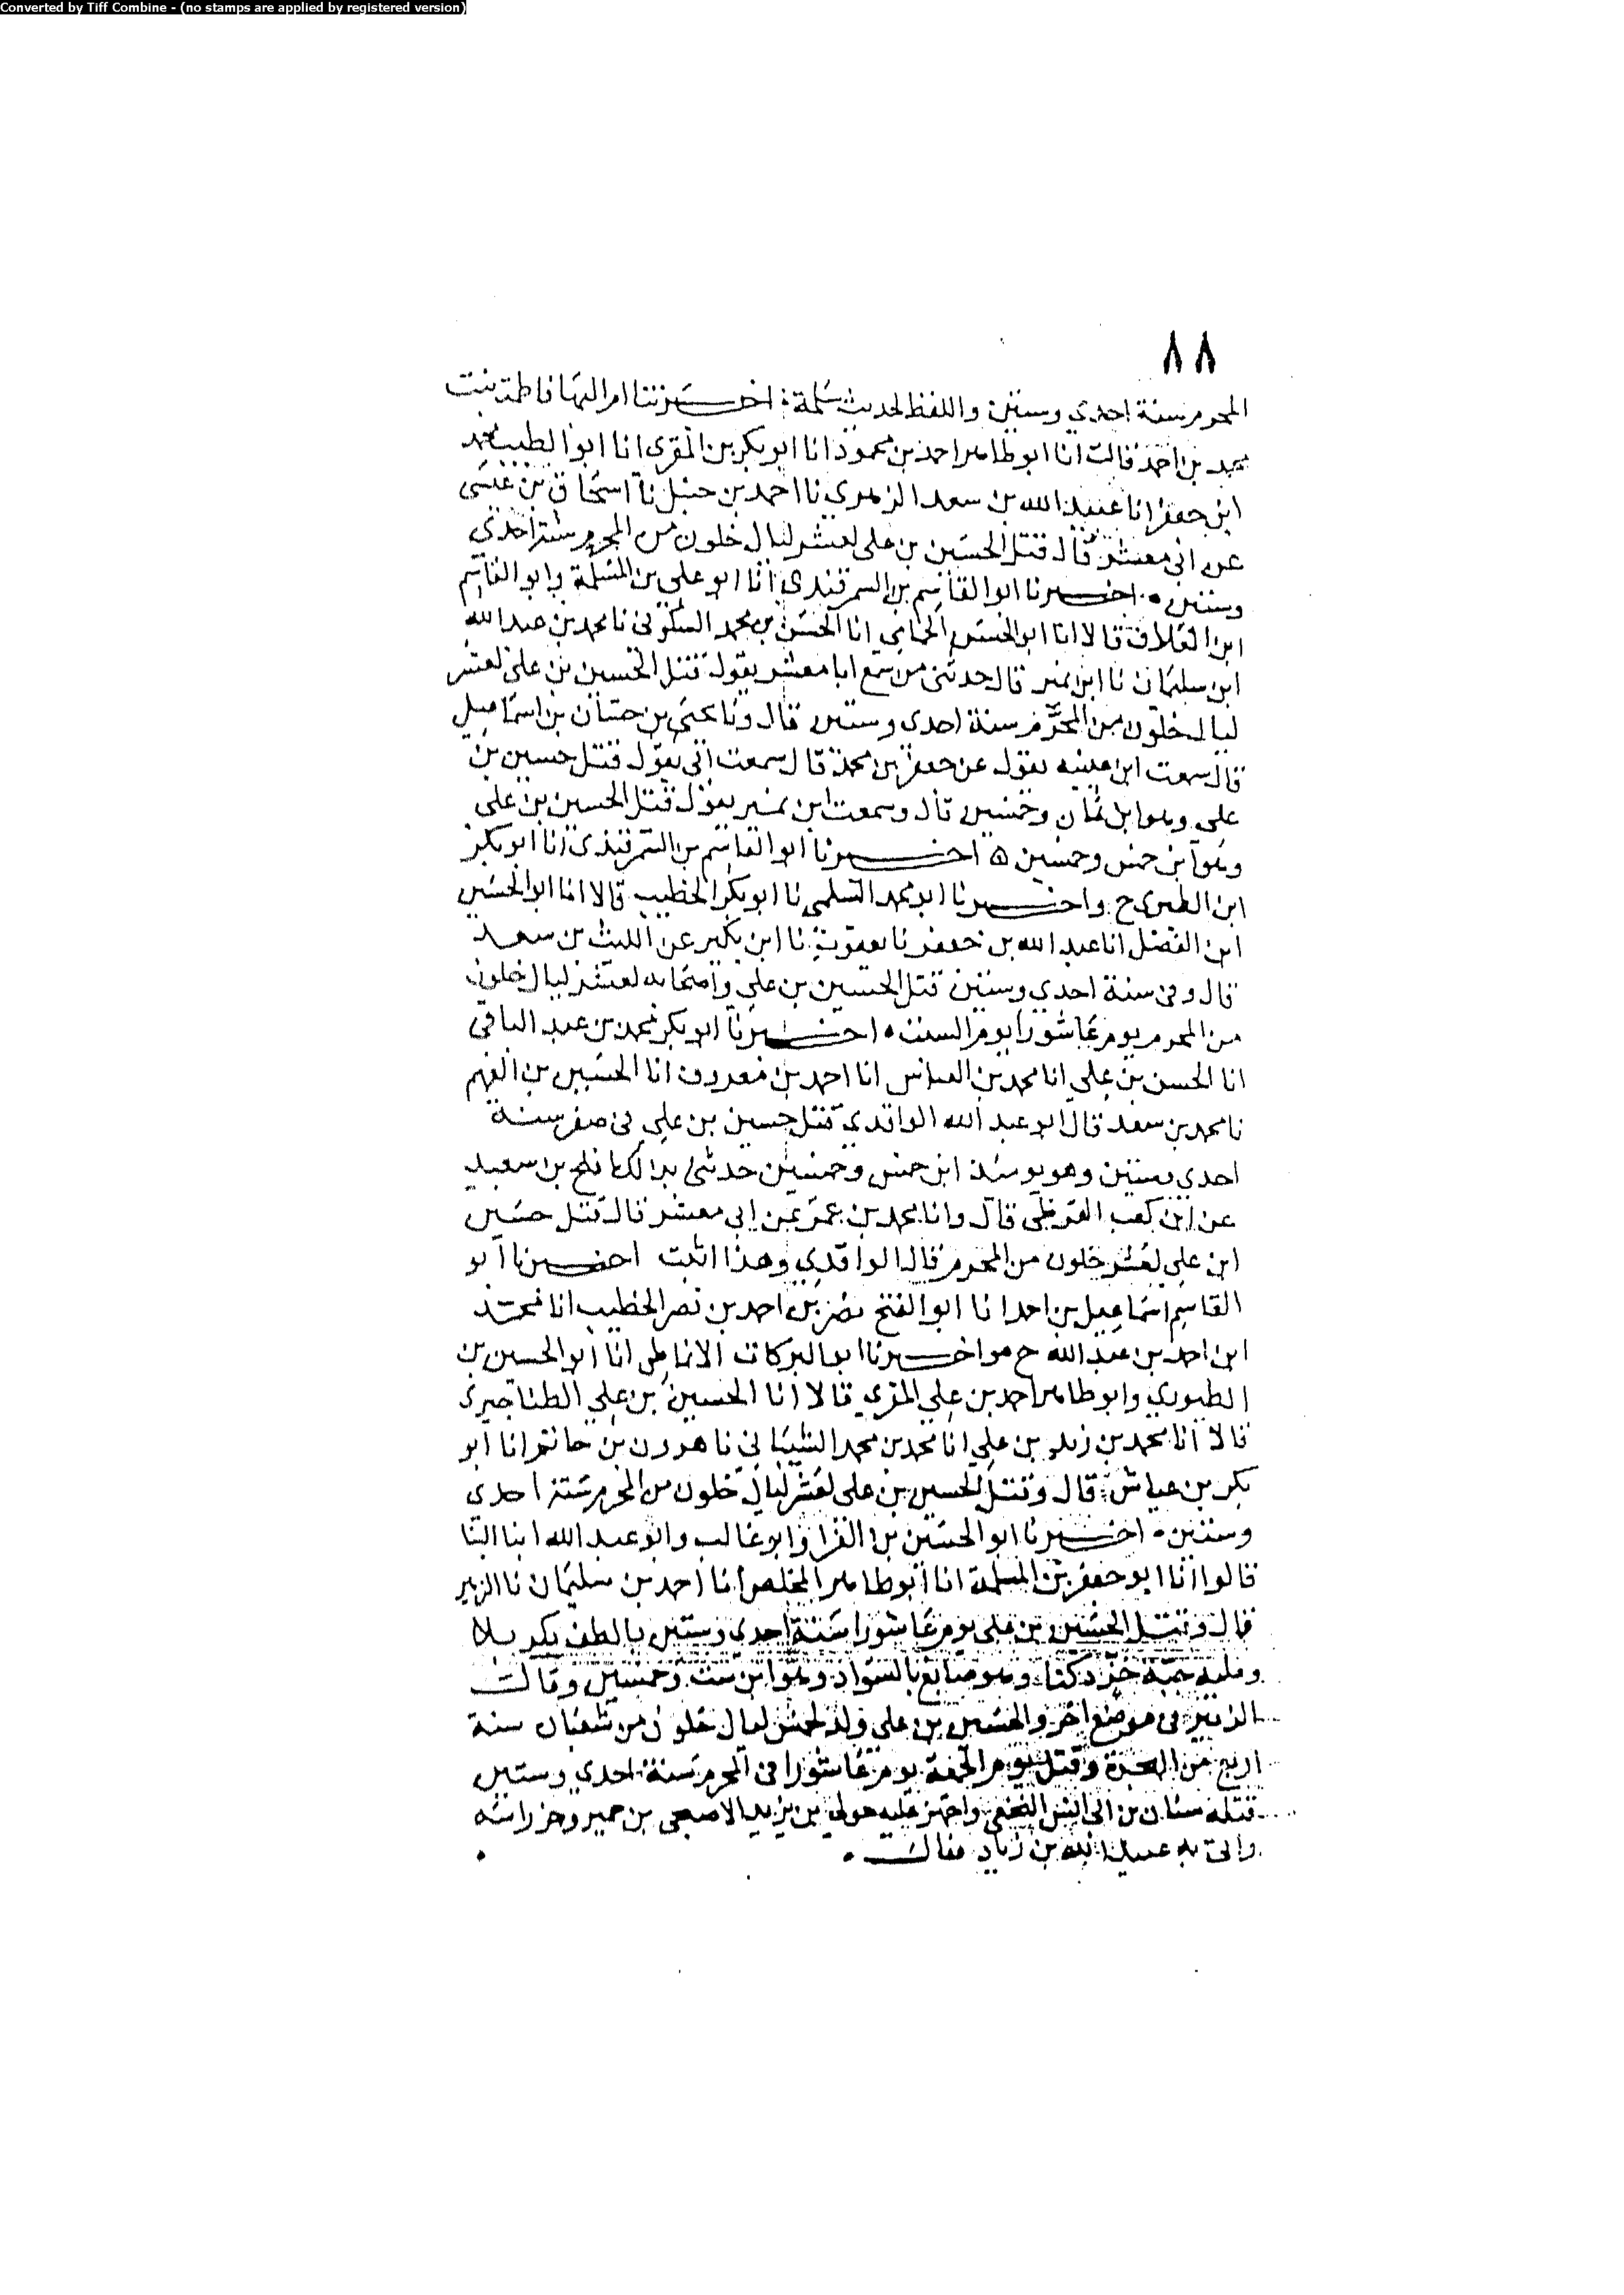 Converted by Tiff Combine - (no stamps are applied by registered version)
٨٨
المحرم سنة احدى وستين واللفظ لحديث سلمة اخبرتنا ام البها فاطمة بنت
محمد بن احمد قالت انا ابو طاهر احمد بن محمود انا ابو بكر بن المقرى انا ابو الطيب محمد
ابن جعفر انا عبيد الله بن سعد الزهري نا احمد بن حنبل نا اسحاق بن عيسى
عن ابى معشر قال قتل الحسين بن على لعشر ليال خلون من المحرم سنة احدى
وستين اخبرنا ابو القاسم بن السمرقندي انا ابو على بن المسلمة وابو القاسم
ابن العلاف قالا انا ابو الحسن الحمامي انا الحسن بن محمد السكونى نا محمد بن عبد الله
ابن سليمان نا ابن نمير قال حدثنى من سمع ابا معشر يقول قتل الحسين بن على لعشر
ليال خلون من المحرم سنة احدى وستين قال ونا يحيى بن حسان بن اسماعيل
قال سمعت ابن عيينه يقول عن جعفر بن محمد قال سمعت ابى يقول قتل حسين بن
على وهو ابن ثمان وخمسين قال وسمعت ابن نمير يقول قتل الحسين بن على
وهو ابن خمس وخمسين ه اخبرنا ابو القاسم بن السمرقندى انا ابو بكر
ابن الطبرى ح واخبرنا ابو محمد السلمى نا ابو بكر الخطيب قالا انا ابو الحسين
ابن الفضل انا عبد الله بن جعفر نا يعقوب نا ابن بكير عن الليث بن سعد
قال وفى سنة احدى وستين قتل الحسين بن على واصحابه لعشر ليال خلون
من المحرم يوم عاشورا يوم السبت اخبرنا ابو بكر محمد بن عبد الباقى
انا الحسن بن علي انا محمد بن العباس انا احمد بن معروف انا الحسين بن الفهم
نا محمد بن سعد قال ابو عبد الله الواقدي قتل حسين بن علي فى صفر سنة
احدى وستين وهو يومئذ ابن خمس وخمسين حدثنى بذلك افلح بن سعيد
عن ابن كعب القرظى قال وانا محمد بن عمر عن ابي معشر قال قتل حسين
ابن علي لعشر خلون من المحرم قال الواقدي وهذا اثبت اخبرنا ابو
القاسم اسماعيل بن احمد انا ابو الفتح نصر بن احمد بن نصر الخطيب انا محمد
ابن احمد بن عبد الله ح واخبرنا ابو البركات الانماطى انا ابو الحسين بن
الطيوري وابو طاهر احمد بن علي المقري قالا انا الحسين بن علي الطناجيرى
قالا انا محمد بن زيد بن علي انا محمد بن محمد الشيباني نا هرون بن حاتم انا ابو
بكر بن عياش قال وقتل الحسين بن على لعشر ليال خلون من المحرم سنة احدى
وستين اخبرنا ابو الحسين بن الفرا وابو غالب وابو عبد الله ابنا البنا
قالوا انا ابو جعفر بن المسلمة انا ابو طاهر المخلص انا احمد بن سليمان نا الزبير
قال وقتل الحسين بن على يوم عاشورا سنة احدى وستين بالطف بكربلا
وعليه جبة خز دكنا وهو صابغ بالسواد وهو ابن ست وخمسين وقال
الزبير فى موضع اخر والحسين بن على ولد لخمس ليال خلون من شعبان سنة
اربع من الهجرة وقتل يوم الجمعة يوم عاشورا فى المحرم سنة احدى وستين
قتله سنان بن ابى انس النخعى واجهز عليه خولي بن يزيد الاصبحى من حمير وحز راسه
واتى به عبيد الله بن زياد فقال